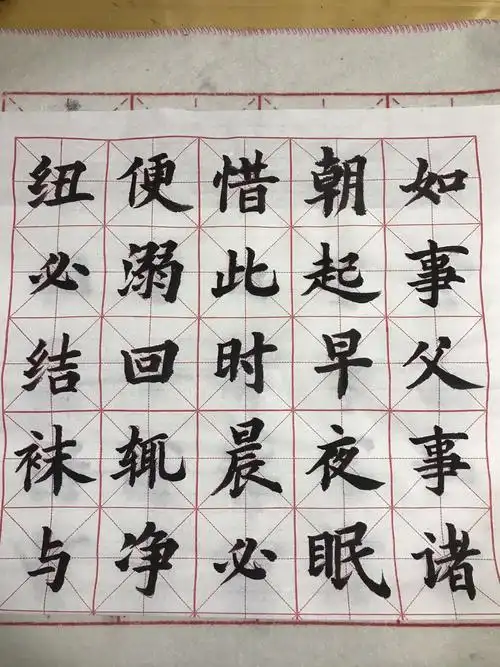 如事父事诸
朝起早夜眠
惜此时晨必
便溺回辄净
纽必结袜与